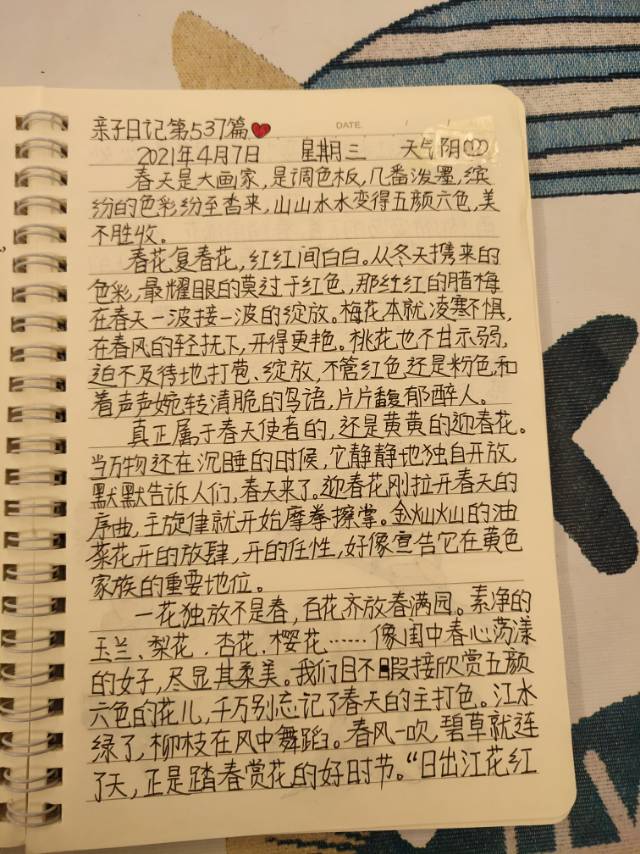 亲子日记第537篇
DATE / /
2021年4月7日 星期三 天气阴
春天是大画家,是调色板,几番泼墨,缤
纷的色彩纷至沓来,山山水水变得五颜六色,美
不胜收。
春花复春花,红红间白白。从冬天携来的
色彩,最耀眼的莫过于红色,那红红的腊梅
在春天一波接一波的绽放。梅花本就凌寒不惧,
在春风的轻抚下,开得更艳。桃花也不甘示弱,
迫不及待地打苞、绽放,不管红色还是粉色,和
着声声婉转清脆的鸟语,片片馥郁醉人。
真正属于春天使者的,还是黄黄的迎春花。
当万物还在沉睡的时候,它静静地独自开放,
默默告诉人们,春天来了。迎春花刚拉开春天的
序曲,主旋律就开始摩拳擦掌。金灿灿的油
菜花开的放肆,开的任性,好像宣告它在黄色
家族的重要地位。
一花独放不是春,百花齐放春满园。素净的
玉兰、梨花、杏花、樱花……像闺中春心荡漾
的女子,尽显其柔美。我们目不暇接欣赏五颜
六色的花儿,千万别忘记了春天的主打色。江水
绿了,柳枝在风中舞蹈。春风一吹,碧草就连
了天,正是踏春赏花的好时节。“日出江花红